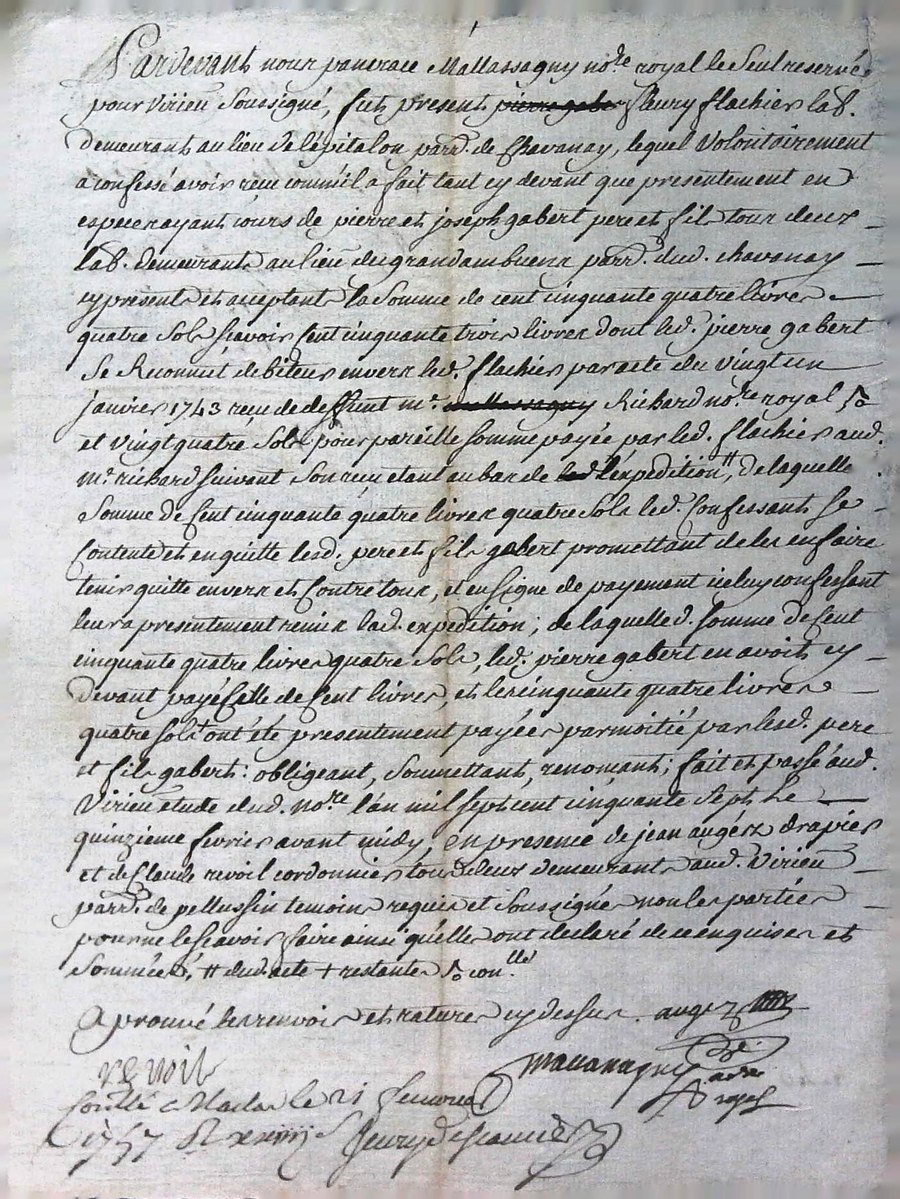 Pardevant nous pancrace Mallassagny no.re royal le Seul reservé
pour Virieu Soussigné, fut present pierre gabe fleury flachier lab.
demeurant au lieu de lépitalon parr. de Chavanay, lequel Volontairement
a confessé avoir reçu comm'il a fait tant cy devant que presentement en
especes ayant cours de pierre et joseph gabert pere et fils tous deux
lab. demeurants au lieu du grand ambuenx parr. dud. chavanay
cy presents et aceptant la Somme de cent cinquante quatre livres
quatre Sols Scavoir Cent cinquante trois livres dont led. pierre gabert
Se Reconnut debiteur envers led. flachier par acte du vingt un
janvier 1743 reçu de deffunt m.e mallassagny Richard no.re royal
et vingt quatre Sols pour pareille somme payée par led. flachier aud.
m.e richard suivant Son reçu etant au bas de led l'expedition ⧺, de laquelle
Somme de Cent cinquante quatre livres quatre Sols led. Confessant Se
Contente et en quitte lesd. pere et fils gabert promettant de les en faire
tenir quitte envers et Contre tous, et en Signe de payement iceluy confessant
leur a presentement remis lad. expedition; de laquelle d. Somme de Cent
cinquante quatre livres quatre Sols, led. pierre gabert en avoit cy
devant payé Celle de Cent livres, et les cinquante quatre livres
quatre Sols + ont été presentement payées par moitié par lesd. pere
et fils gabert: obligeant, Soumettant, renonçant; fait et passé aud.
Virieu etude dud. no.re l'an mil Sept cent cinquante Sept le
quinzieme fevrier avant midy, en presence de jean augez drapier
et de Claude revoil cordonnier tous deux demeurants aud. Virieu
parr. de pellussin temoins requis et Soussignés non les parties
pour ne le Scavoir faire ainsi qu'elles ont declaré de ce enquises et
Sommées, ⧺ dud. acte + restantes
Aprouvé les renvois et ratures cy dessus. augez
revoil
Mallassagny
no.re
royal
Conllé a Maclas le 21 fevrier
1757